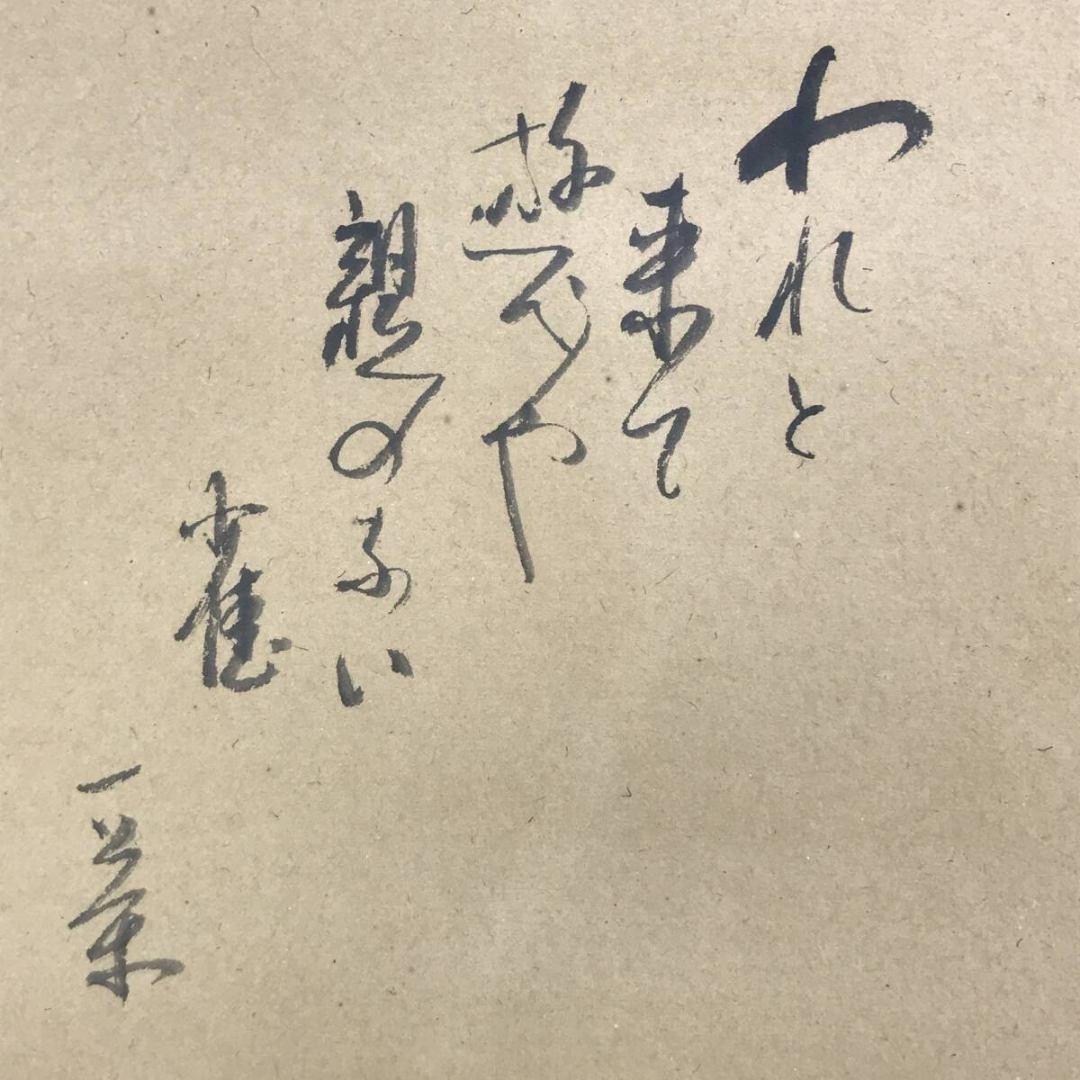 われと
来て
遊べや
親のない
雀
一茶